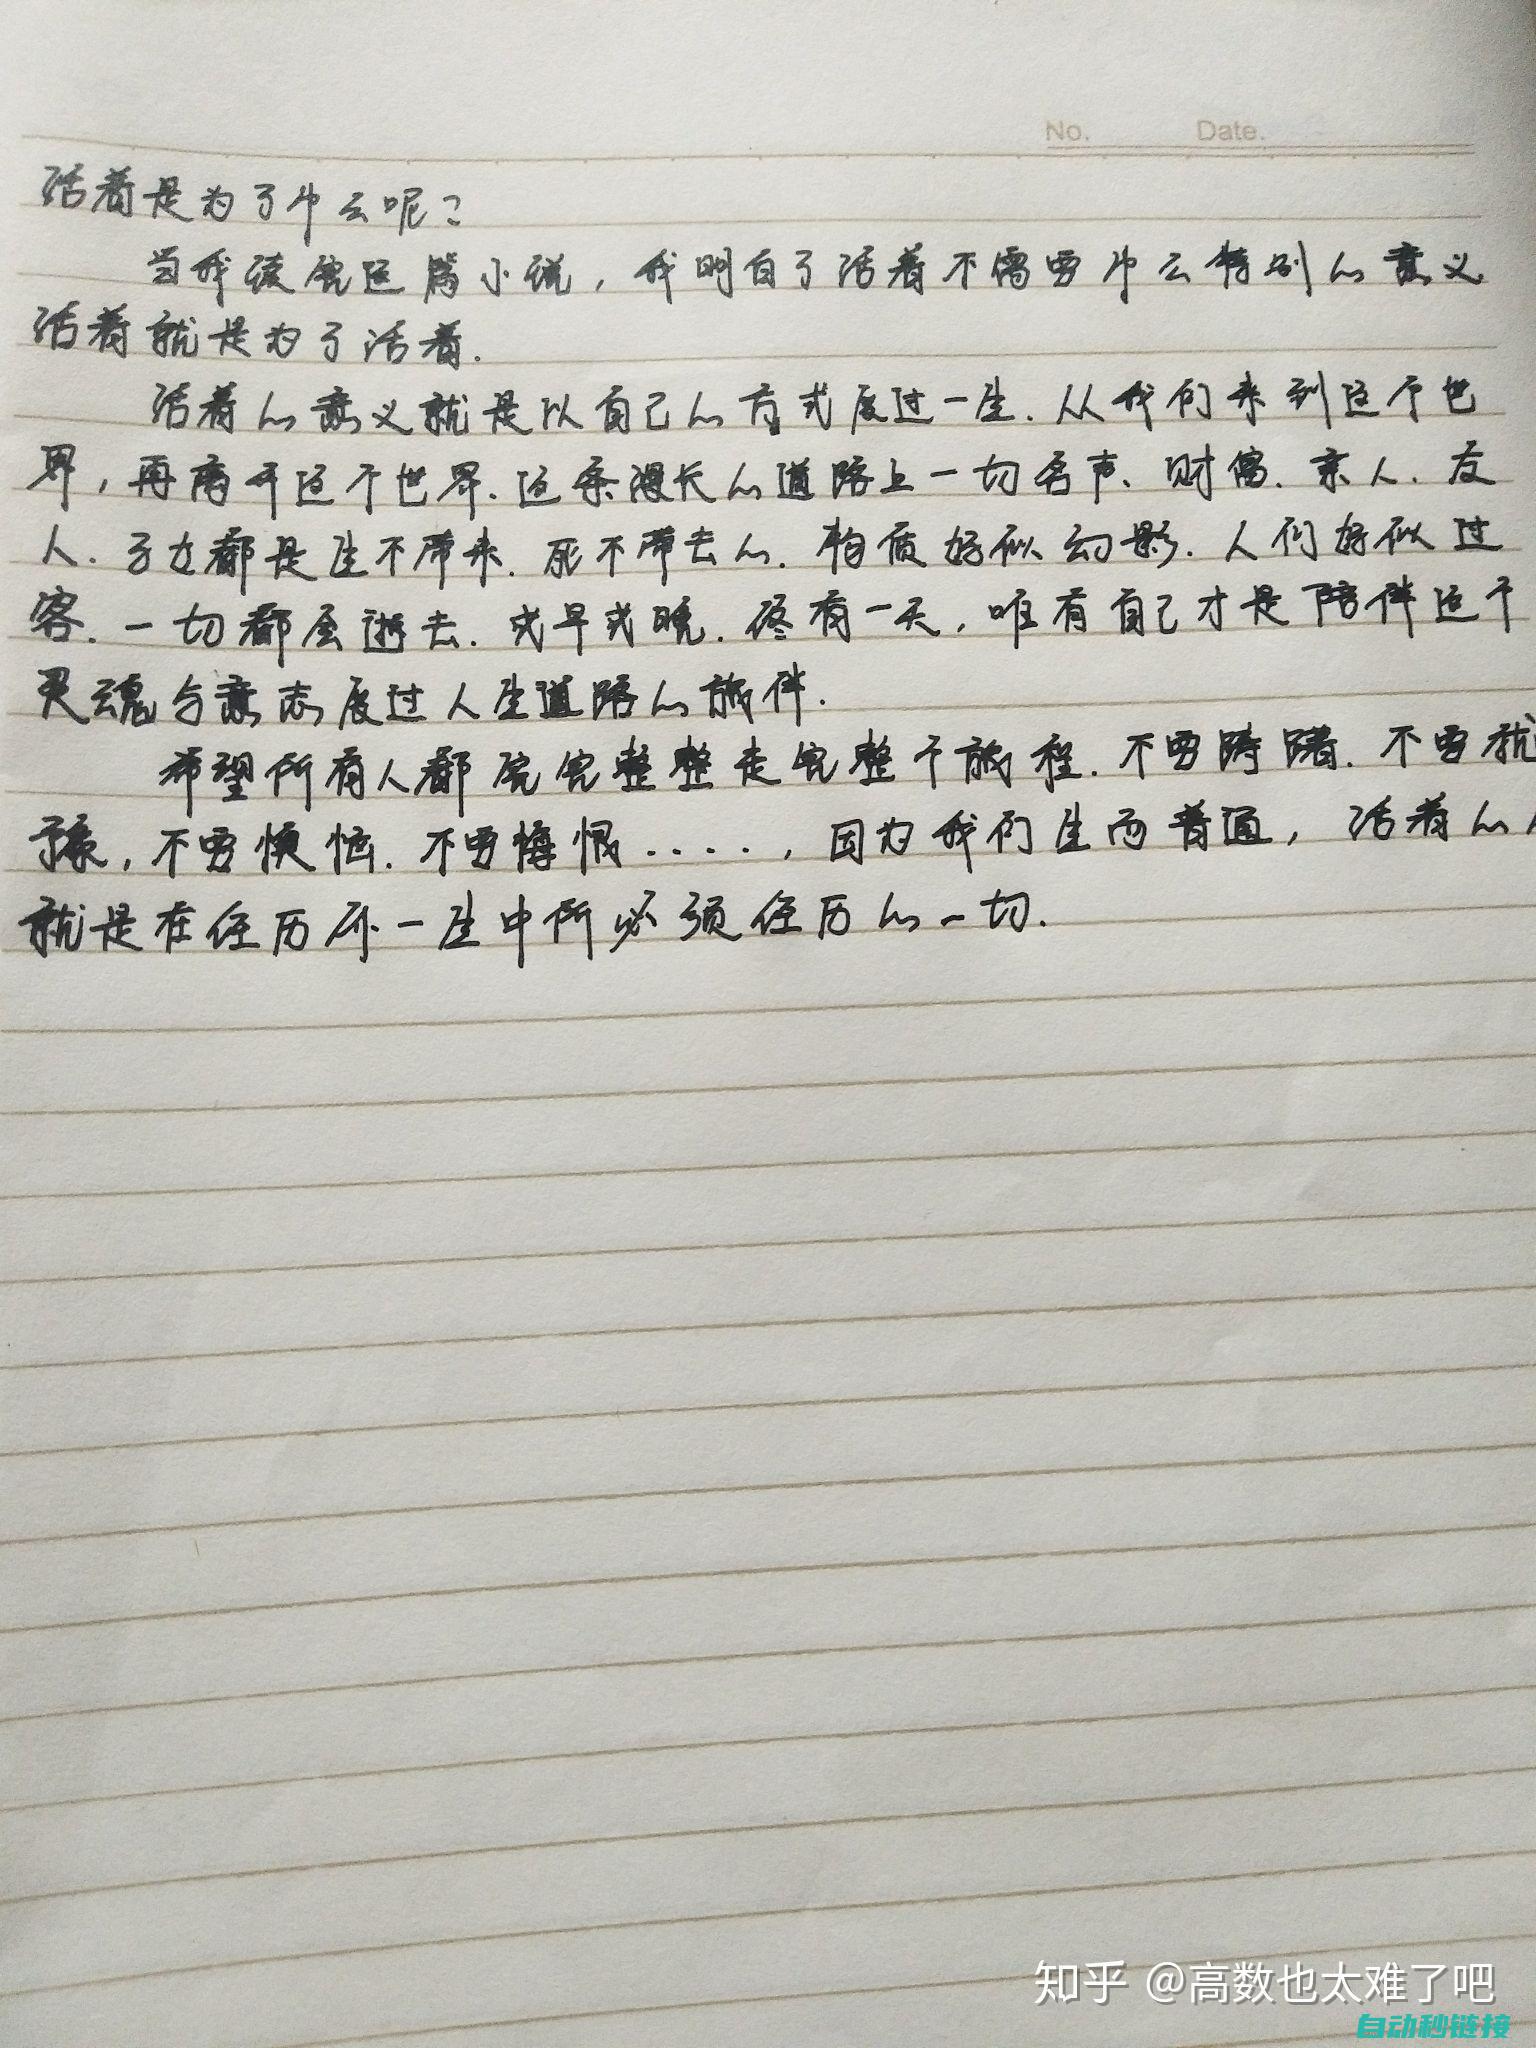 No. Date.
活着是为了什么呢?
当我读完这篇小说,我明白了活着不需要什么特别的意义
活着就是为了活着.
活着的意义就是以自己的方式度过一生.从我们来到这个世
界,再离开这个世界.这条漫长的道路上一切名声、财富.亲人.友
人.子女都是生不带来.死不带去的.物质好似幻影.人们好似过
客.一切都会逝去.或早或晚.终有一天,唯有自己才是陪伴这个
灵魂与意志度过人生道路的旅伴.
希望所有人都完完整整走完整个旅程.不要踌躇.不要犹
豫,不要懊恼.不要悔恨....,因为我们生而普通,活着的
就是在经历你一生中所必须经历的一切.
知乎 @高数也太难了吧
自动秒链接